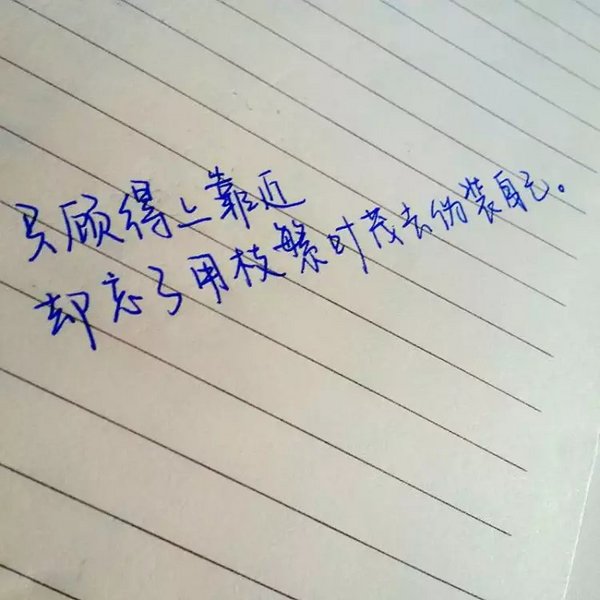 只顾得上靠近
却忘了用枝繁叶茂去伪装自己。